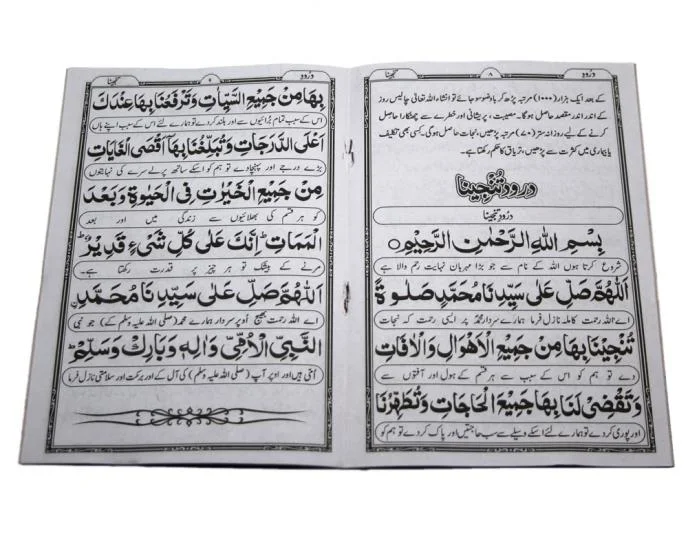 درود ۸ تنجینا
کے بعد ایک ہزار (۱۰۰۰) مرتبہ پڑھ کر باوضو سو جائے تو انشاء اللہ تعالٰی چالیس روز
کے اندر اندر مقصد حاصل ہوگا۔ مصیبت، پریشانی اور خطرے سے چھٹکارا حاصل
کرنے کے لیے روزانہ ستر (۷۰) مرتبہ پڑھیں، نجات حاصل ہوگی۔ کسی بھی تکلیف
یا بیماری میں کثرت سے پڑھیں، تریاق کا حکم رکھتا ہے۔
درود تُنجِینا
درُودِ تنجینا
بِسْمِ اللّٰهِ الرَّحْمٰنِ الرَّحِيْمِ
شروع کرتا ہوں اللہ کے نام سے جو بڑا مہربان نہایت رحم والا ہے
اَللّٰهُمَّ صَلِّ عَلٰى سَيِّدِنَا مُحَمَّدٍ صَلٰوةً
اے اللہ رحمت کاملہ نازل فرما ہمارے سردار محمدؐ پر ایسی رحمت کہ نجات
تُنْجِيْنَا بِهَا مِنْ جَمِيْعِ الْاَهْوَالِ وَالْاٰفَاتِ
دے تو ہم کو اس کے سبب سے ہر قسم کے ہول اور آفتوں سے
وَتَقْضِىْ لَنَا بِهَا جَمِيْعَ الْحَاجَاتِ وَتُطَهِّرُنَا
اور پوری کردے تو ہمارے لئے اسکے وسیلے سے سب حاجتیں اور پاک کردے تو ہم کو
درود ۹ تنجینا
بِهَا مِنْ جَمِيْعِ السَّيِّاٰتِ وَتَرْفَعُنَا بِهَا عِنْدَكَ
اس کے سبب تمام برائیوں سے اور بلند کردے تو ہمارے لئے اس کے سبب اپنے ہاں
اَعْلَى الدَّرَجَاتِ وَتُبَلِّغُنَا بِهَا اَقْصَى الْغَايَاتِ
بڑے درجے اور پہنچا دے تو ہم کو اسکے ساتھ پرلے سرے کی نہایتوں
مِنْ جَمِيْعِ الْخَيْرَاتِ فِى الْحَيٰوةِ وَبَعْدَ
کو ہر قسم کی بھلائیوں سے زندگی میں اور بعد
الْمَمَاتِ اِنَّكَ عَلٰى كُلِّ شَىْءٍ قَدِيْرٌ
مرنے کے بیشک تو ہر چیز پر قدرت رکھتا ہے۔
اَللّٰهُمَّ صَلِّ عَلٰى سَيِّدِنَا مُحَمَّدِ
اے اللہ رحمت بھیج اُوپر سردار ہمارے محمد (صلی اللہ علیہ وسلم کے) جو نبی
النَّبِيِّ الْاُمِّيِّ وَاٰلِهٖ وَبَارِكْ وَسَلِّمْ
اُمّی ہیں اور اوپر آپ (صلی اللہ علیہ وسلم) کی آل کے اور برکت اور سلامتی نازل فرما